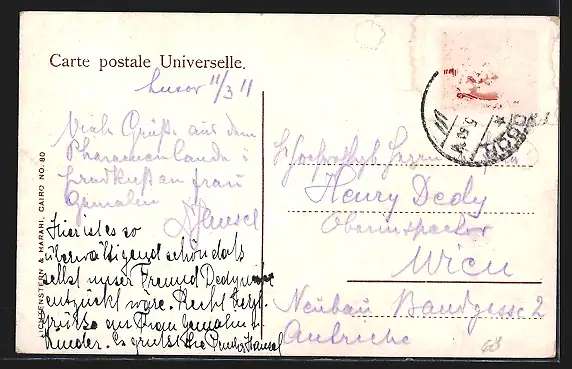 Carte postale Universelle.
Luxor 11/3 11
Viele Grüße aus dem
Pharaonenlande u
Handkuß an Frau
Gemalin
Hansel
Hier ist es so
überwältigend schön daß
selbst unser Freund Dedy
entzückt wäre. Recht herzl.
Grüße an Frau Gemalin u
Kinder. Es grüßt Sie Hansel
LICHTENSTEIN & HARARI, CAIRO NO. 80
Hochwohlgb Herrn
Henry Dedy
Oberinspector
Wien
Neubau Bandgasse 2
Autriche
68